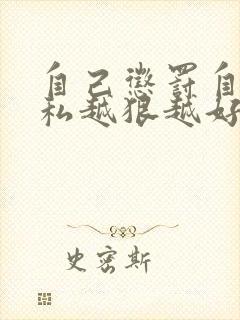 自己惩罚自
私越狠越好
史密斯